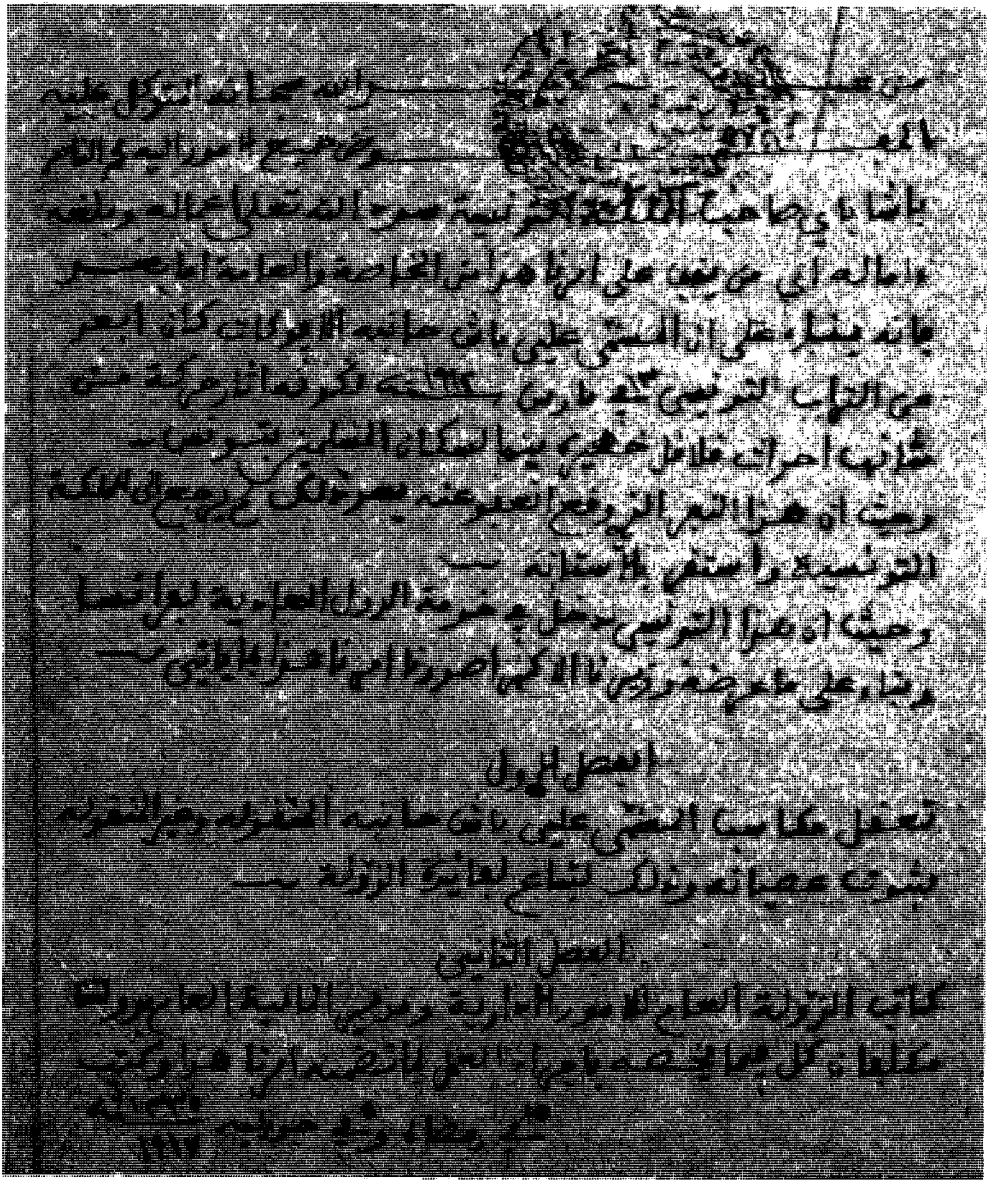 من عبد الله سبحانه المتوكل عليه
وفي جميع الامور اليه محمد الناصر
باشا باي صاحب المملكة التونسية سدد الله تعلى اعماله وبلغه
ءاماله الي من يقف على امرنا هذا من الخاصة والعامة اما بعد
فانه بناء على ان المسمى علي باش حانبه الافوكات كان ابعد
من التراب التونسي في ١٣ مارس سنة ١٩١٢ لكونه اثار حركة من
شانها احداث قلاقل خطيرة بين السكان المسلمين بتونس
وحيث ان هذا البعد الذي وقع العفو عنه بعد ذلك لم يرجع الى المملكة
التونسية واستقر بالاستانه
وحيث ان هذا التونسي دخل في خدمة الدول المعادية لفرانسا
وبناء على ما عرضه وزيرنا الاكبر اصدرنا امرنا هذا بما ياتي
الفصل الاول
تعقل مكاسب المسمى علي باش حانبه المنقوله وغير المنقوله
بثبوت عصيانه وذلك لتباع لفائدة الدولة
الفصل الثاني
كاتب الدولة العام للامور الادارية ومدير المالية العام بدولتنا
مكلفان كل فيما يخصه باجراء العمل بما تضمنه امرنا هذا وكتب
في رمضان وفي جويليه سنة ١٣٣٥
١٩١٧